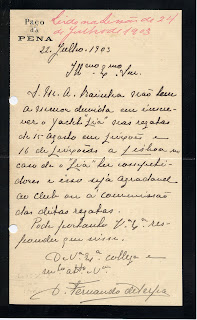 Paço
da
PENA
Lida na sessão de 24
de Julho de 1903
22. Julho. 1903
Illmo Exmo Snr.
S. M. A. Rainha não tem
a menor duvida em inscre-
ver o Yacht "Lia" nas regatas
de 15 Agosto em
16 de a Lisboa no
caso do "Lia" ter competi-
dores e isso seja agradavel
ao Club ou á commissão
das ditas regatas.
Pode portanto V. Exa res-
ponder que
De V. Exa collega e
D. Fernando de Serpa